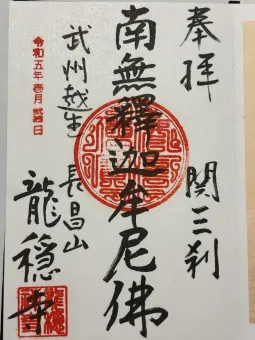 奉拝
関三刹
南無釋迦牟尼佛
武州越生
長昌山
龍穏寺
令和五年壱月
日